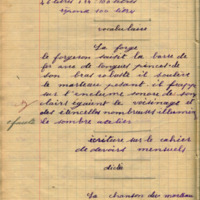 vocabulaire
La forge
le forgeron saisit la barre de
fer avec de longues pinces de
son bras robuste il soulève
le marteau pesant il frappe
sur l'enclume sonore de
clairs égaient le voisinage et
des étincelles nombreuses illumin
le sombre atelier
écriture sur le cahier
de devoirs mensuels
dictée
La chanson du marteau